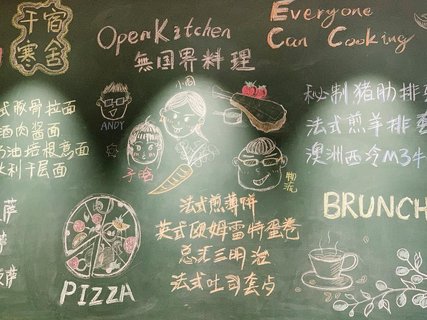 干宿
寒舍
OpenKitchen
無国界料理
Everyone
Can Cooking
小厨
ANDY
子晗
式豚骨拉面
酒肉酱面
奶油培根意面
大利千层面
秘制猪肋排
法式煎羊排
澳洲西冷M3牛
萨
萨
萨
PIZZA
法式煎薄饼
英式欧姆雷特蛋卷
总汇三明治
法式吐司套点
BRUNCH